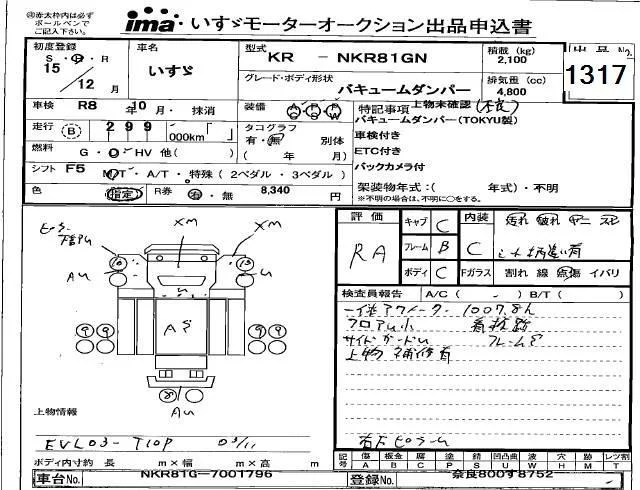 ㊟赤太枠内は必ず
ボールペンで
ご記入下さい。
ima いすゞモーターオークション出品申込書
初度登録 車名 型式 KR - NKR81GN 積載 (kg) 2,100 出品No.
S・H・R 15 12 月 いすゞ グレード・ボディ形状 バキュームダンパー 排気量 (cc) 4,800 1317
車検 R8 年 10 月・抹消 装備 AC PS PW 特記事項 上物未確認(不良)
バキュームダンパー(TOKYU製)
走行 (B) 299 000km「 」 タコグラフ 有・無 別体 ( 年 月) 車検付き
燃料 G・D・HV 他( ) ETC付き
シフト F5 MT・A/T・特殊 (2ペダル・3ペダル) バックカメラ付
架装物年式:( 年式)・不明
※不明の場合は、不明に○をする。
色 (指定) R券 有・無 8,340 円
評価 RA キャブ C 内装 C 汚れ 破れ ヤニ
シート柄違い有
フレーム B
ボディ C Fガラス 割れ 線 点傷 イバリ
XM XM
AU
U
検査員報告 A/C ( - ) B/T ( )
フロアU小
サイドガードU
上物 補修有
上物情報
EVL03-T10P 03/11
ボディ内寸約 長 m×幅 m×高 m
記号 傷 A 板金 B 腐 C 塗 P 錆 S 凹凸曲 U 波 W 穴 H 跡 M レツ割 T
車台No. NKR81G-7001796 登録No. 奈良800す8752